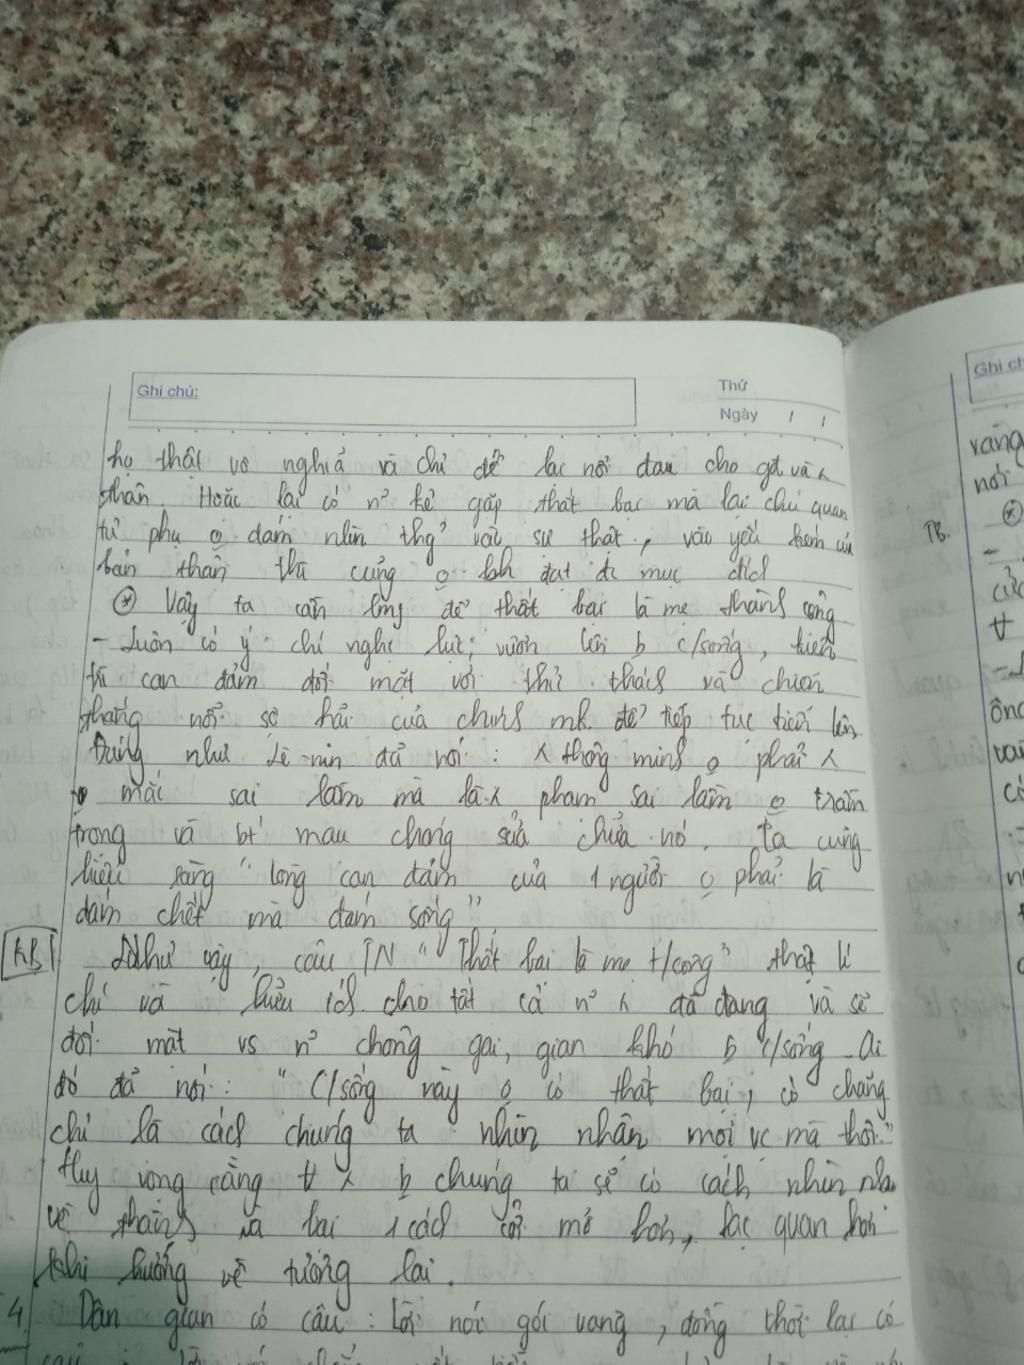 Ghi chú:
Thứ
Ngày / /
họ thật vô nghĩa và chỉ để lại nỗi đau cho gđ và
thân. Hoặc lại có n² kẻ gặp thất bại mà lại chủ quan
tự phụ o dám nhìn thg² vào sự thật, vào yếu kém của
bản thân thì cũng o đạt đc mục đích
* Vậy ta cần lmj để thất bại là mẹ thành công
- Luôn có ý chí nghị lực, vươn lên c/sống,
can đảm đối mặt với thử thách và chiến
thắng nỗi sợ hãi của chính mk để tiếp tục tiến lên
Đúng như Lê-nin đã nói: thông minh o phải
o mắc sai lầm mà là phạm sai lầm o trầm
trọng và bt mau chóng sửa chữa nó. Ta cũng
hiểu rằng "lòng can đảm của 1 người o phải là
dám chết mà dám sống"
KB Như vậy, câu TN "Thất bại là mẹ t/công" thật lí
chí và hữu ích cho tất cả n² đã đang và sẽ
đối mặt vs n² chông gai, gian khó c/sống. Ai
đó đã nói: "C/sống này o có thất bại, có chăng
chỉ là cách chúng ta nhìn nhận mọi vc mà thôi."
Hy vọng rằng ∀ chúng ta sẽ có cách nhìn
về thành và bại 1 cách cởi mở hơn, lạc quan hơn
khi hướng về tương lai.
4. Dân gian có câu: Lời nói gói vàng, đồng thời lại có
Ghi ch
vàng
nói
*
TB.
-
∀
ông